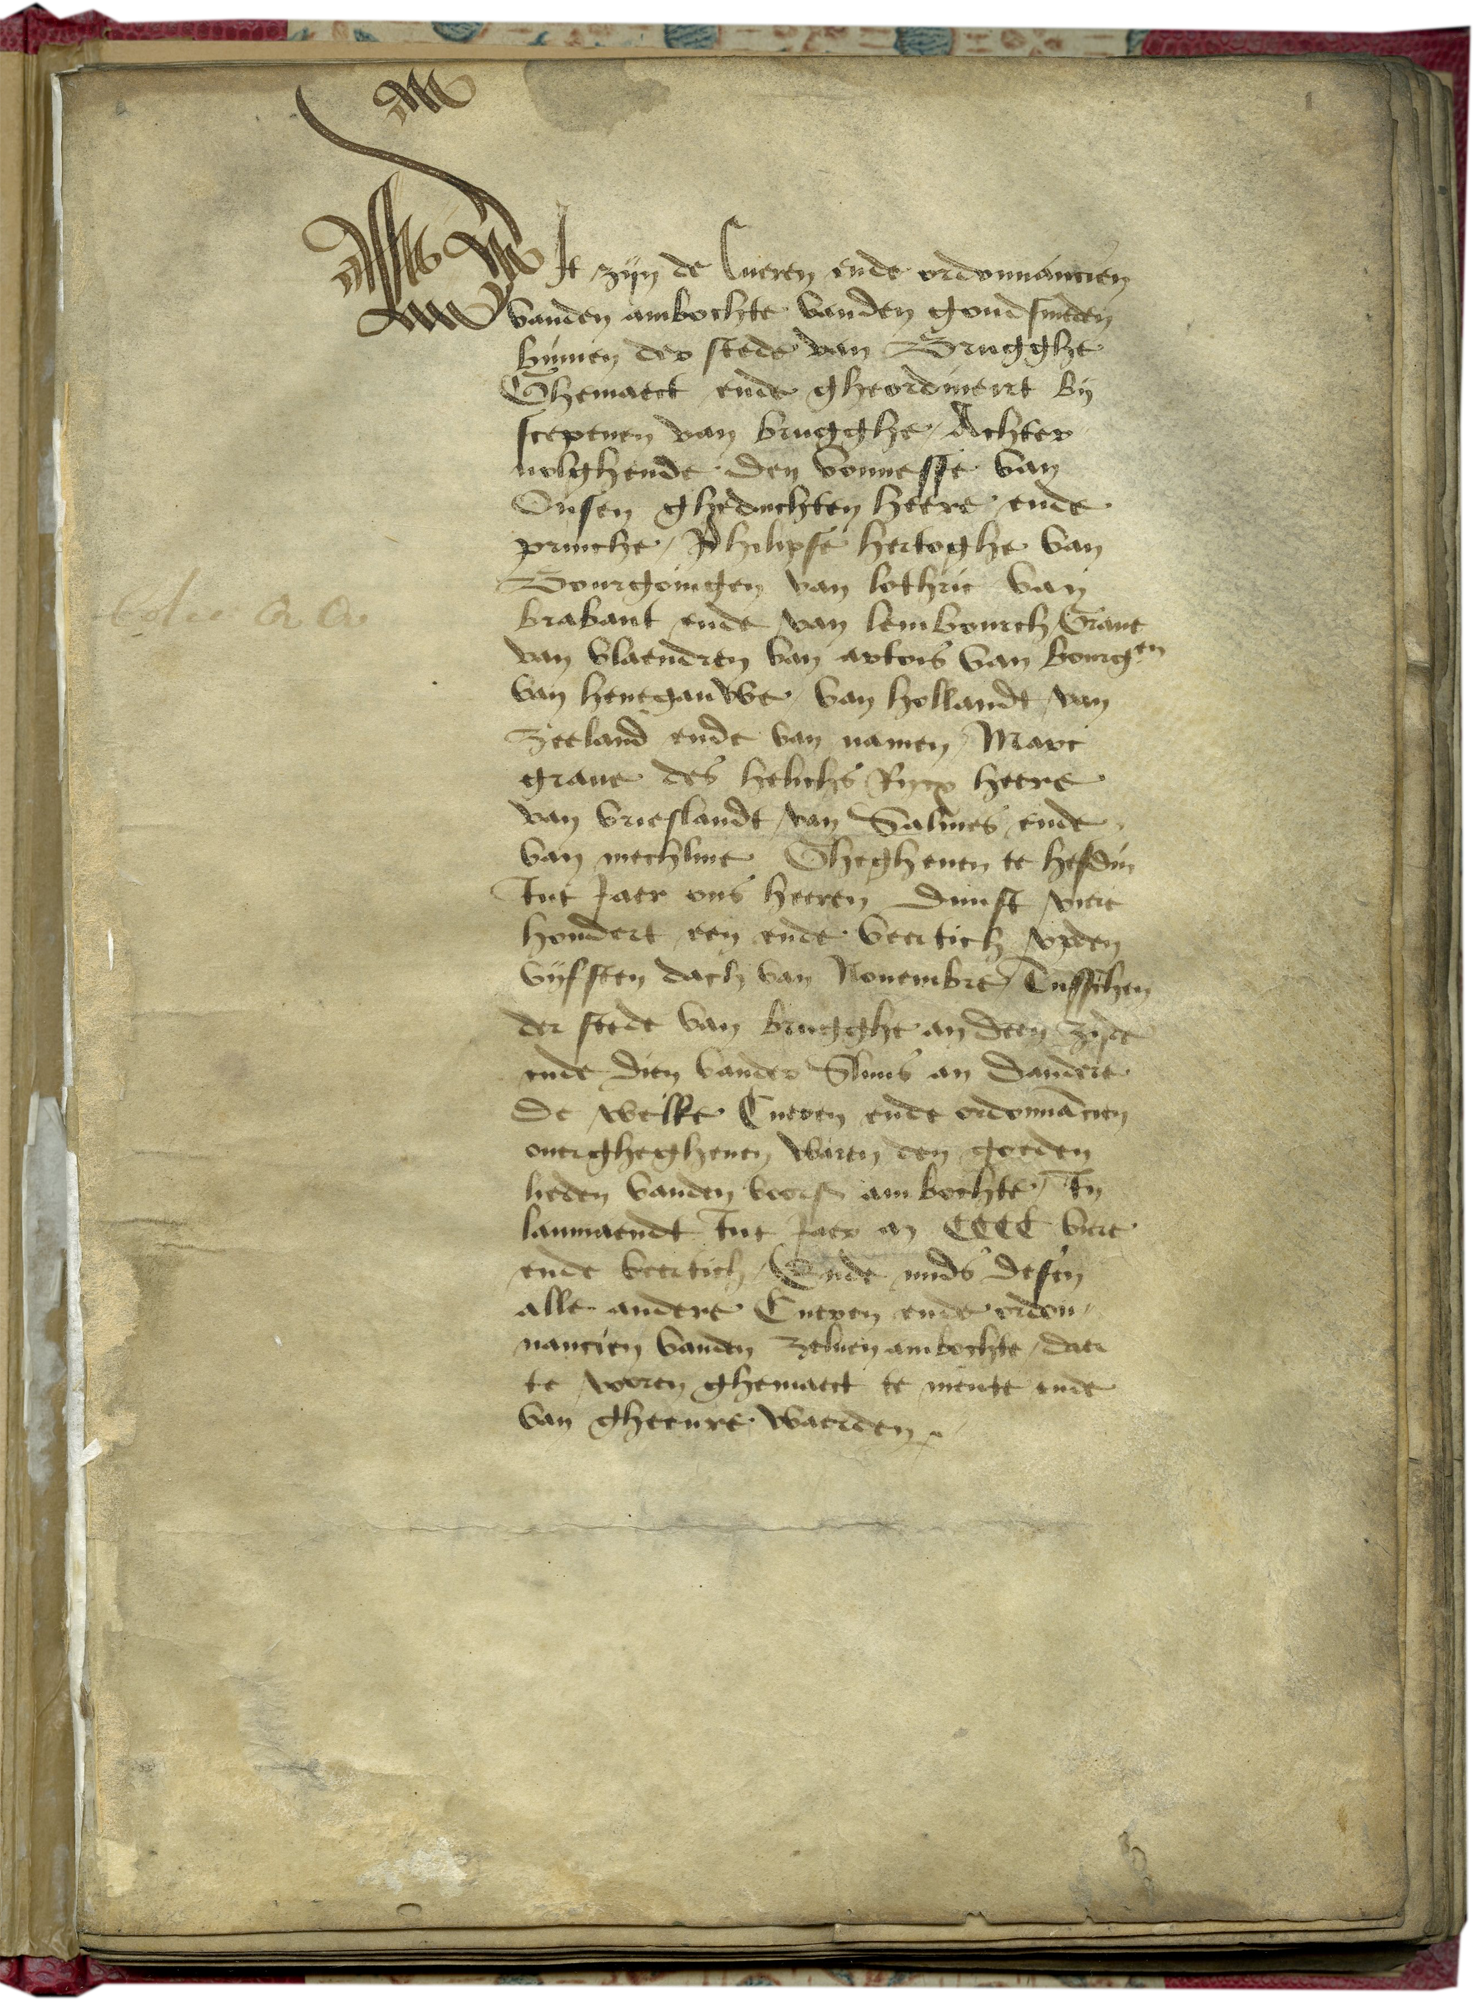 Dit zijn de Cueren ende ordonnancien
vanden ambochte vanden goudsmeden
binnen der stede van Brugghe
Ghemaect ende gheordineirt bij
scepenen van brugghe / Achter
volghende den vonnesse van
Onsen gheduchten heere ende
prinche / Philipse hertoghe van
Bourgoingen van lothric van
brabant ende van lembourch / Graue
van vlaendren van artois van bourgen
van henegauwe / van hollandt / van
zeeland ende van namen / Marc
graue des helichs Rijcx heere
van vrieslandt / van Salines ende
van mechline Ghegheuen te hesdin
Int Jaer ons heeren Dunst vier
hondert een ende veertich / vpden
vijfsten dach van Nouembre / Tusschen
der stede van brugghe an deen zijde
ende dien vander Sluus an dandere
De welke Cueren ende ordonnācien
ouerghegheuen waren den goeden
lieden vanden voors ambochte / In
laumaendt Int Jaer an CCCC viere
ende veertich / Ende mids desen
alle andere Cueren ende ordon /
nancien vanden zeluen ambochte / daer
te voren ghemaect te niente ende
van gheenre waerden